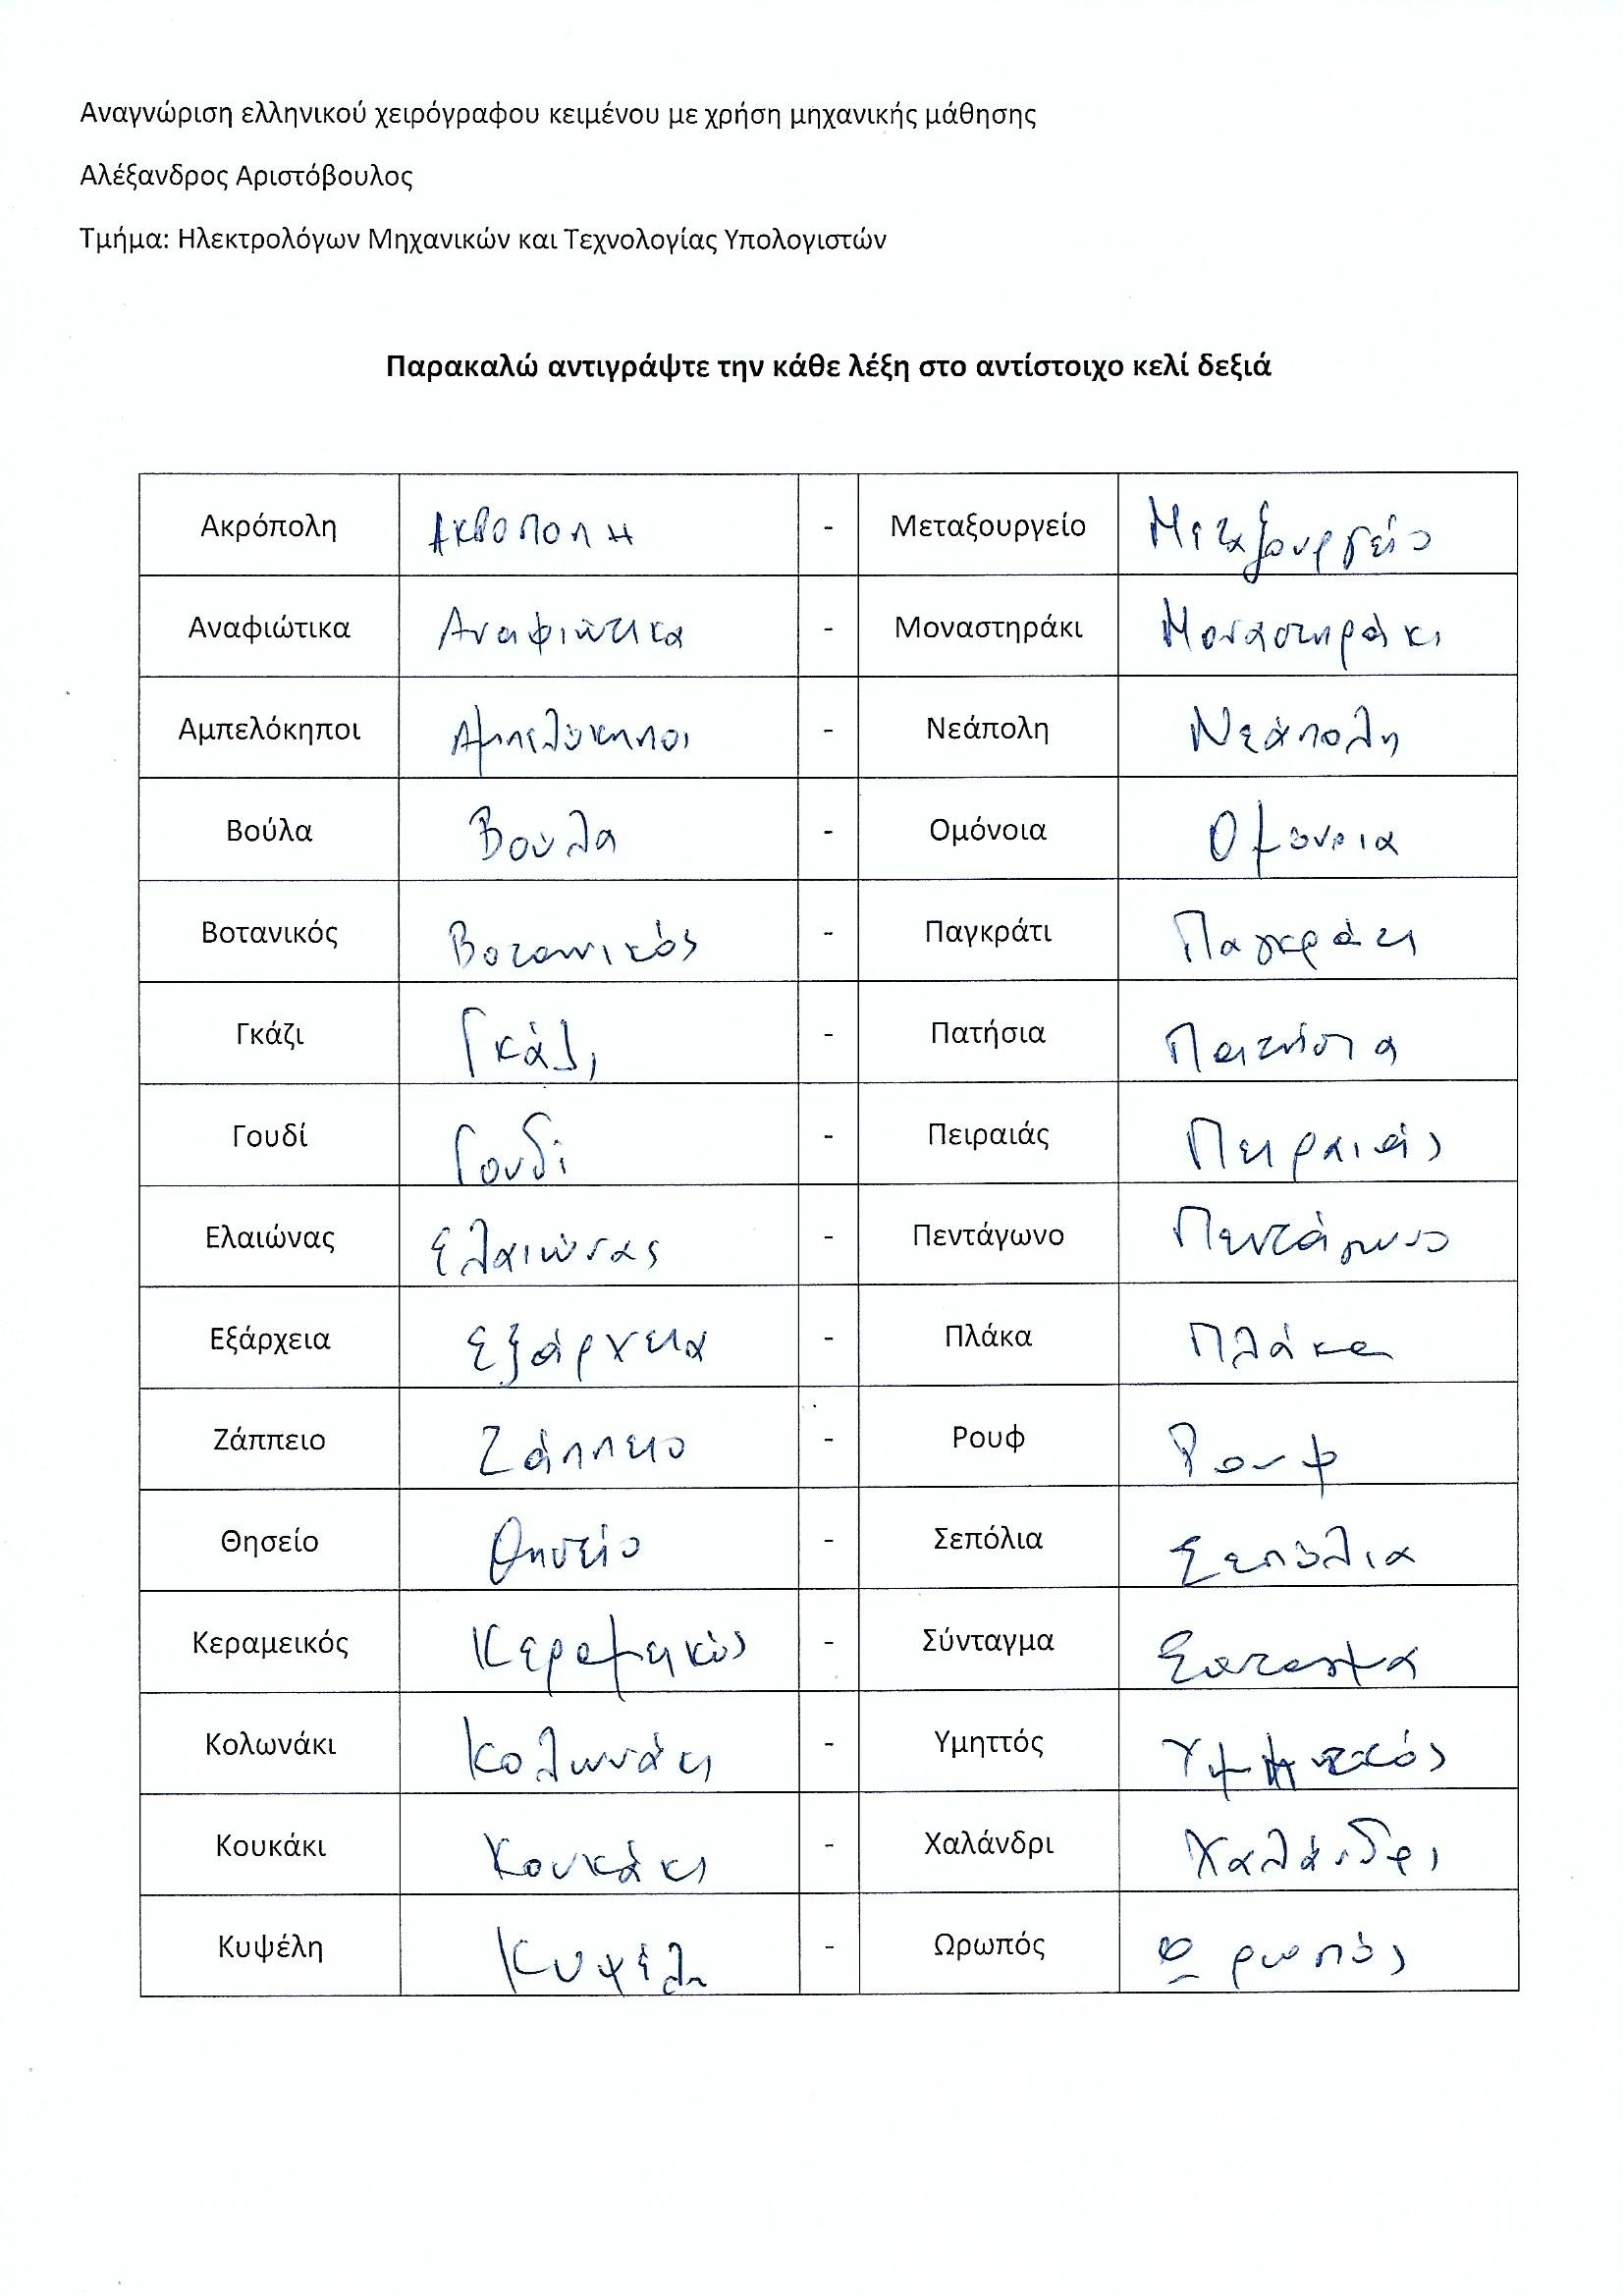 Αναγνώριση ελληνικού χειρόγραφου κειμένου με χρήση μηχανικής μάθησης
Αλέξανδρος Αριστόβουλος
Τμήμα: Ηλεκτρολόγων Μηχανικών και Τεχνολογίας Υπολογιστών
Παρακαλώ αντιγράψτε την κάθε λέξη στο αντίστοιχο κελί δεξιά
Ακρόπολη ΑΚΡΟΠΟΛΗ - Μεταξουργείο Μεταξουργείο
Αναφιώτικα Αναφιώτικα - Μοναστηράκι Μοναστηράκι
Αμπελόκηποι Αμπελόκηποι - Νεάπολη Νεάπολη
Βούλα Βούλα - Ομόνοια Ομόνοια
Βοτανικός Βοτανικός - Παγκράτι Παγκράτι
Γκάζι Γκάζι - Πατήσια Πατήσια
Γουδί Γουδί - Πειραιάς Πειραιάς
Ελαιώνας Ελαιώνας - Πεντάγωνο Πεντάγωνο
Εξάρχεια Εξάρχεια - Πλάκα Πλάκα
Ζάππειο Ζάππειο - Ρουφ Ρουφ
Θησείο Θησείο - Σεπόλια Σεπόλια
Κεραμεικός Κεραμεικός - Σύνταγμα
Κολωνάκι Κολωνάκι - Υμηττός Υμηττός
Κουκάκι Κουκάκι - Χαλάνδρι Χαλάνδρι
Κυψέλη Κυψέλη - Ωρωπός Ωρωπός